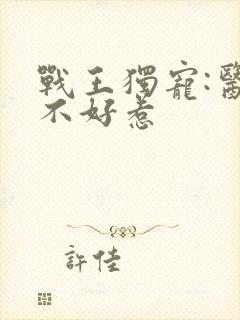 戰王獨寵:醫
不好惹
許佳